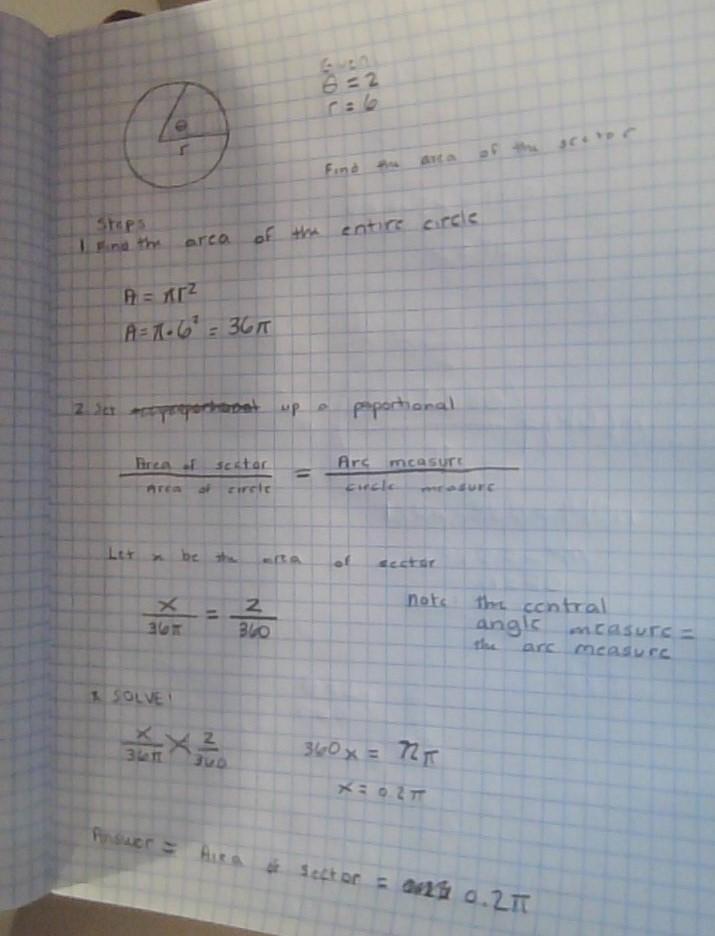 Given
θ = 2
r = 6
θ
r
Find the area of the sector
Steps
1. Find the area of the entire circle
A = πr²
A = π·6² = 36π
2. Set up a poportional
Area of sector / Area of circle = Arc measure / circle measure
Let x be the area of sector
x/36π = 2/360
note the central
angle measure =
the arc measure
SOLVE!
x/36π × 2/360
360x = 72π
x = 0.2π
Answer = Area of sector = 0.2π